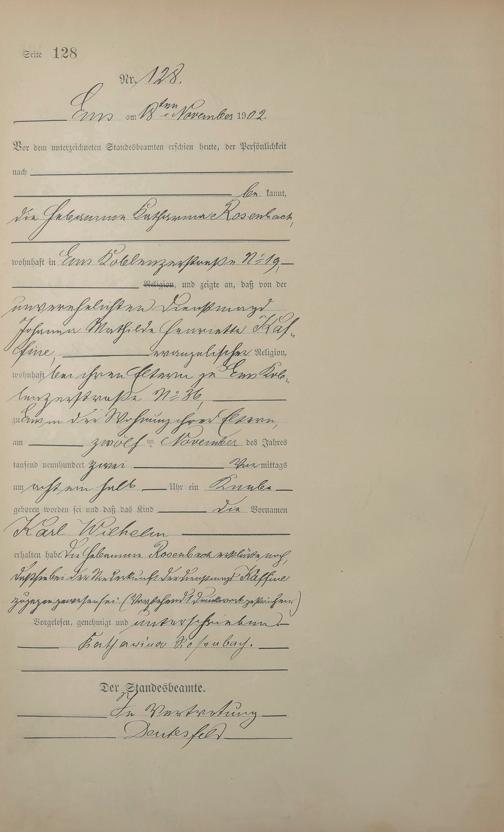 Seite 128
Nr. 128.
Ems am 13ten November 1902.
Vor dem unterzeichneten Standesbeamten erschien heute, der Persönlichkeit
nach
be kannt,
die Hebamme Katharina Rosenbach,
wohnhaft in Ems Koblenzerstraße No 19,
Religion, und zeigte an, daß von der
unverehelichten Dienstmagd
Johanna Mathilde Henriette Käf-
fine, evangelischer Religion,
wohnhaft bei ihren Eltern zu Ems Kob-
lenzerstraße No 36,
zu Ems in der Wohnung ihrer Eltern,
am zwölf ten November des Jahres
tausend neunhundert zwei Vor mittags
um acht ein halb Uhr ein Knabe
geboren worden sei und daß das Kind die Vornamen
Karl Wilhelm
erhalten habe. Die Hebamme Rosenbach erklärte noch,
daß sie bei der Niederkunft der Dienstmagd Käffine
zugegen gewesen sei. (Vorstehend 1 Druckwort gestrichen)
Vorgelesen, genehmigt und unterschrieben
Katharina Rosenbach.
Der Standesbeamte.
In Vertretung